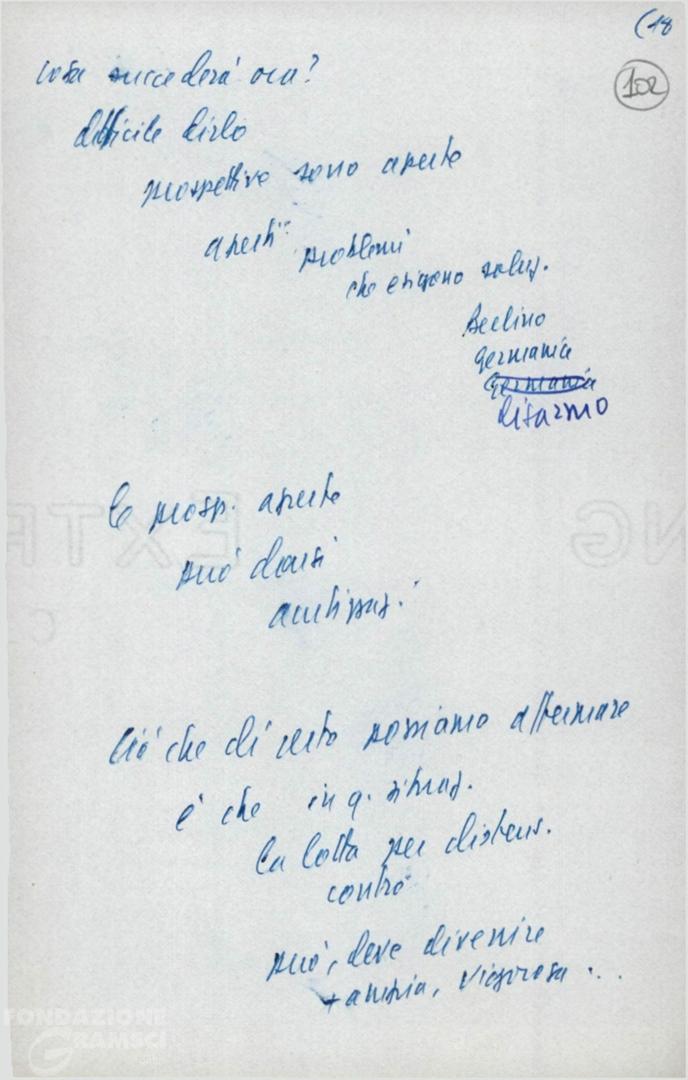 (18
102
cosa succederà ora?
difficile dirlo
prospettive sono aperte
aperti problemi
che esigono soluz.
Berlino
Germania
Germania
disarmo
le prosp. aperte
può darsi
Ciò che di certo possiamo affermare
è che in q. situaz.
la lotta per distens.
contro
può, deve divenire
+ ampia, vigorosa ...
FONDAZIONE
GRAMSCI